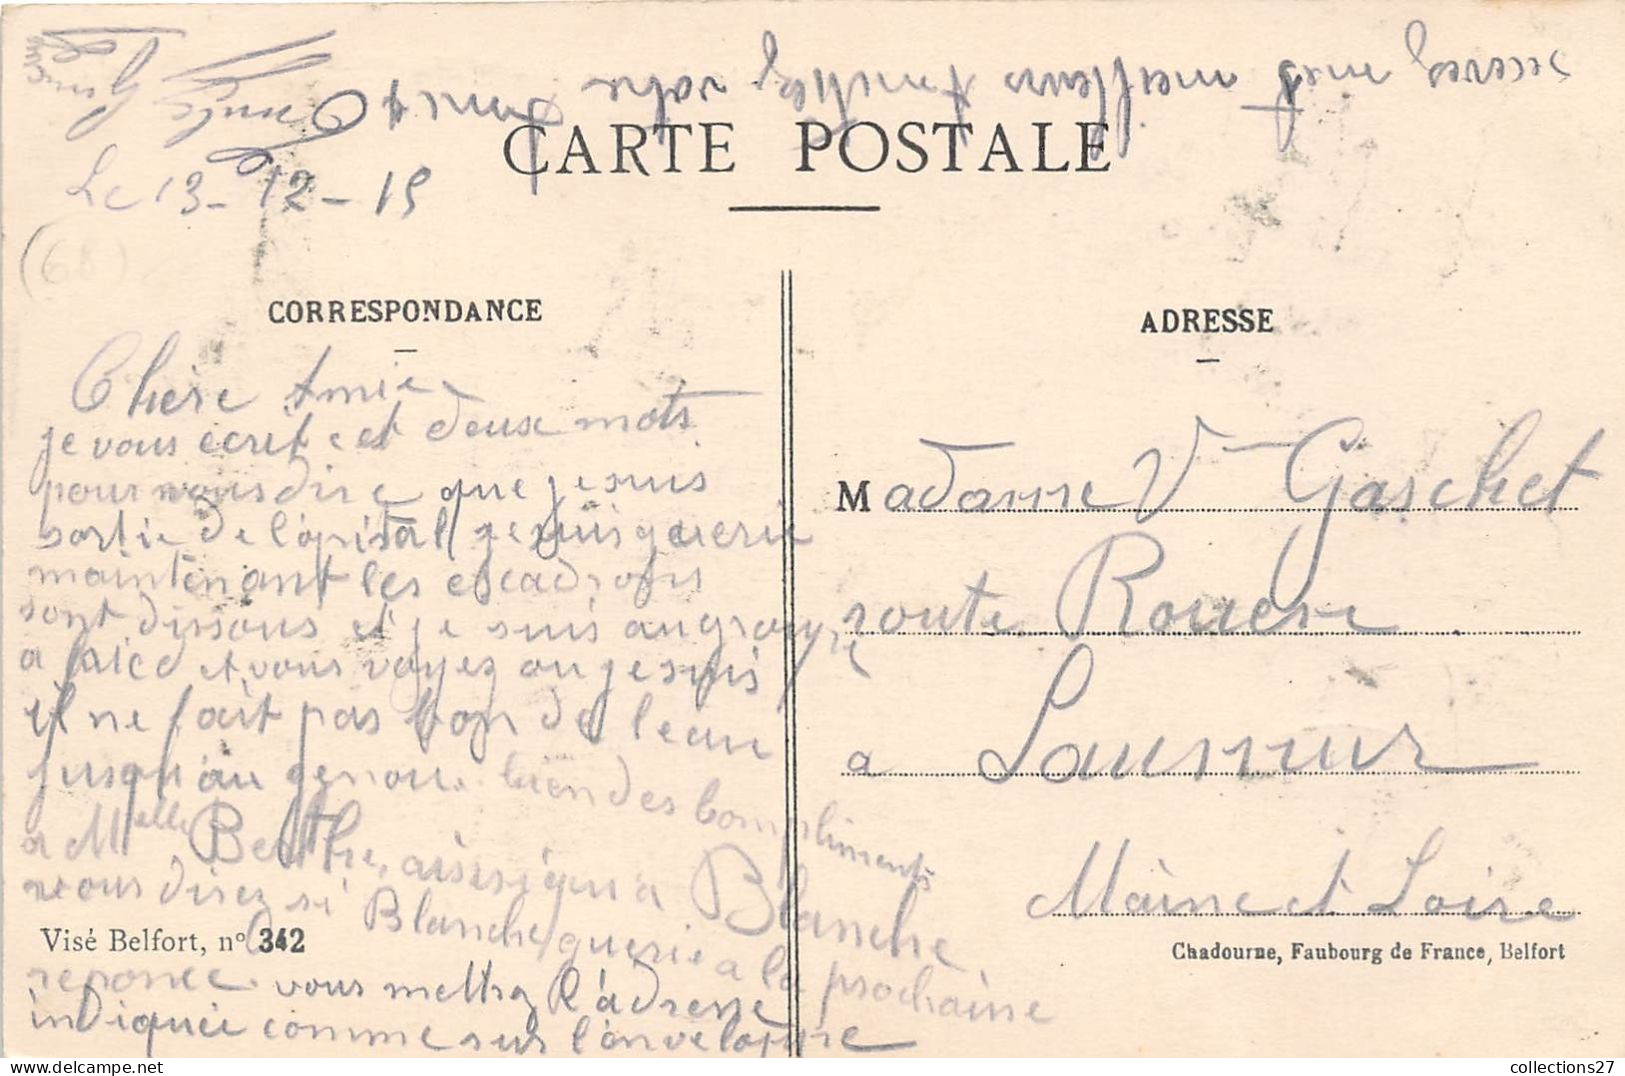 recevez mes meilleurs Amitiés votre Amie
Le 13-12-15
(68)
CARTE POSTALE
CORRESPONDANCE
Chère Amie
je vous écrit cet deux mots
pour vous dire que je suis
sortie de l'opital je suis guerie
maintenant les escadrons
sont dissous et je suis au groupe
a piied et vous voyez ou je suis
il ne fait pas bon de l'eau
jusqu'au genou. bien des Compliments
a Melle Berthe, ainsi qu'a Blanche
vous direz si Blanche guerie a la prochaine
reponce. vous mettrez l'adresse
indiquée comme sur l'enveloppe
Visé Belfort, n° 342
ADRESSE
Madame Ve Gaschet
route Rouen
a Saumur
Maine et Loire
Chadourne, Faubourg de France, Belfort
collections27